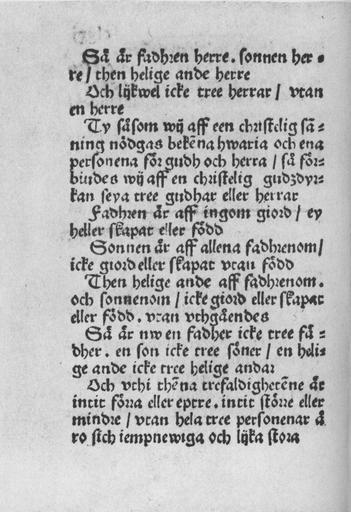 Sä är fadhren herre. sonnen her⸗
re / then helige ande herre
Och lijkwel icke tree herrar / vtan
en herre
Ty säsom wij aff een christelig sa⸗
ning nödgas bekēna hwaria och ena
personena för gudh och herra / sä för⸗
biudes wij aff en christelig gudzdyr⸗
kan seya tree gudhar eller herrar
Fadhren är aff ingom giord / ey
heller skapat eller född
Sonnen är aff allena fadhrenom /
icke giord eller skapat vtan född
Then helige ande aff fadhrenom.
och sonnenom / icke giord eller skapat
eller född. vtan vthgäendes
Sä är nw en fadher icke tree fä⸗
dher. en son icke tree söner / en heli⸗
ge ande icke tree helige andar
Och vthi thēna trefaldighetēne är
intit förra eller eptre. intit större eller
mindre / vtan hela tree personenar ä
ro sich iempnewiga och lijka stora